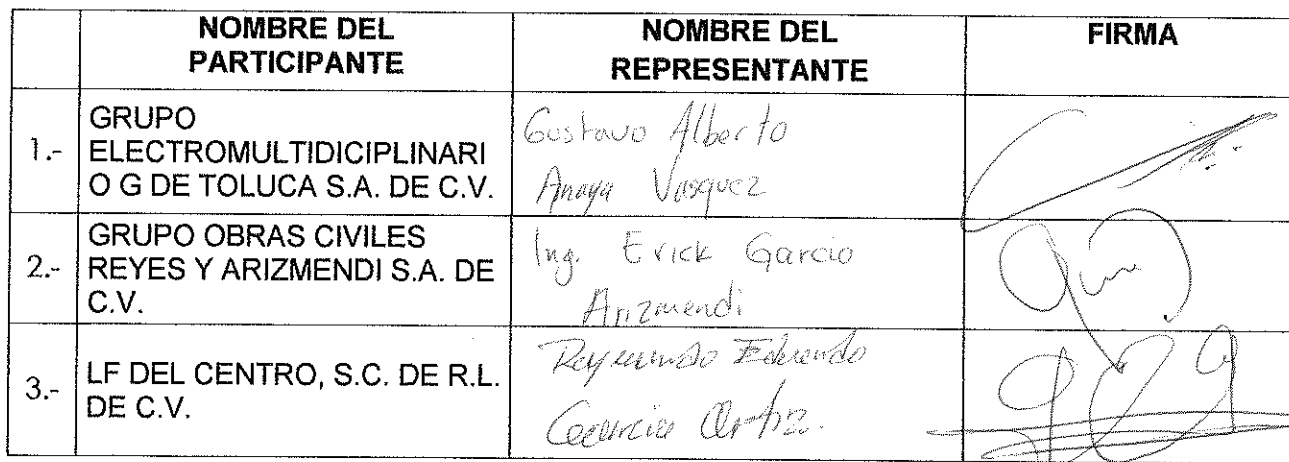 NOMBRE DEL
PARTICIPANTE
NOMBRE DEL
REPRESENTANTE
FIRMA
1.-
GRUPO
ELECTROMULTIDICIPLINARI
O G DE TOLUCA S.A. DE C.V.
Gustavo Alberto
Anaya Vasquez
2.-
GRUPO OBRAS CIVILES
REYES Y ARIZMENDI S.A. DE
C.V.
Ing. Erick Garcia
Arizmendi
3.-
LF DEL CENTRO, S.C. DE R.L.
DE C.V.
Reymundo Eduardo
Garcia Ortiz.